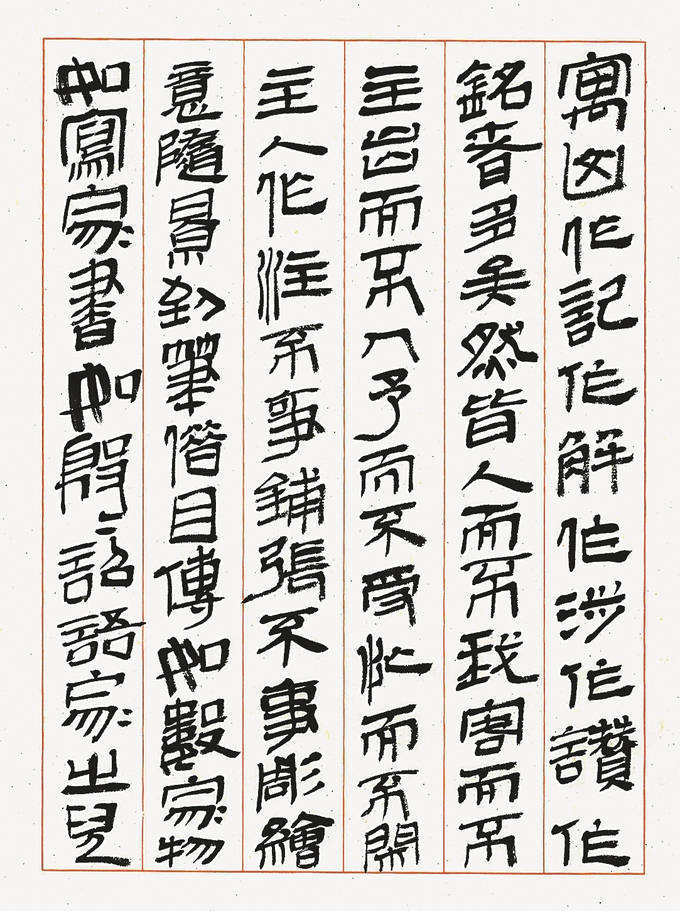 寓山作記作解作涉作讚作
銘者多矣然皆人而不我客而不
主出而不入予而不受忙而不閒
主人作注不事鋪張不事彫繪
意隨景到筆借目傳如數家物
如寫家書如殷〻詔語家之兒